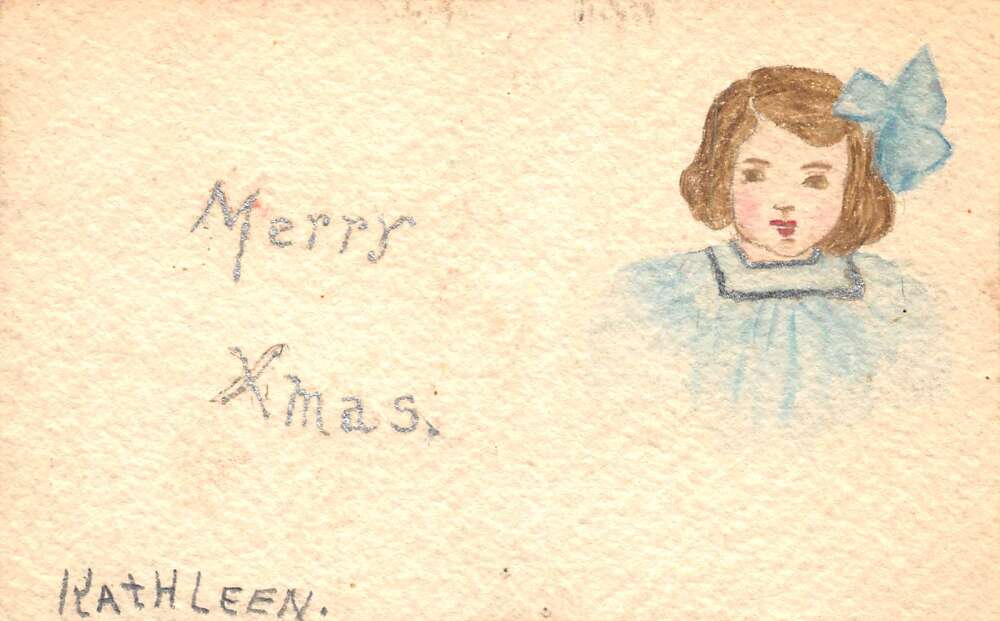 Merry
Xmas.
KAtHLEEN.